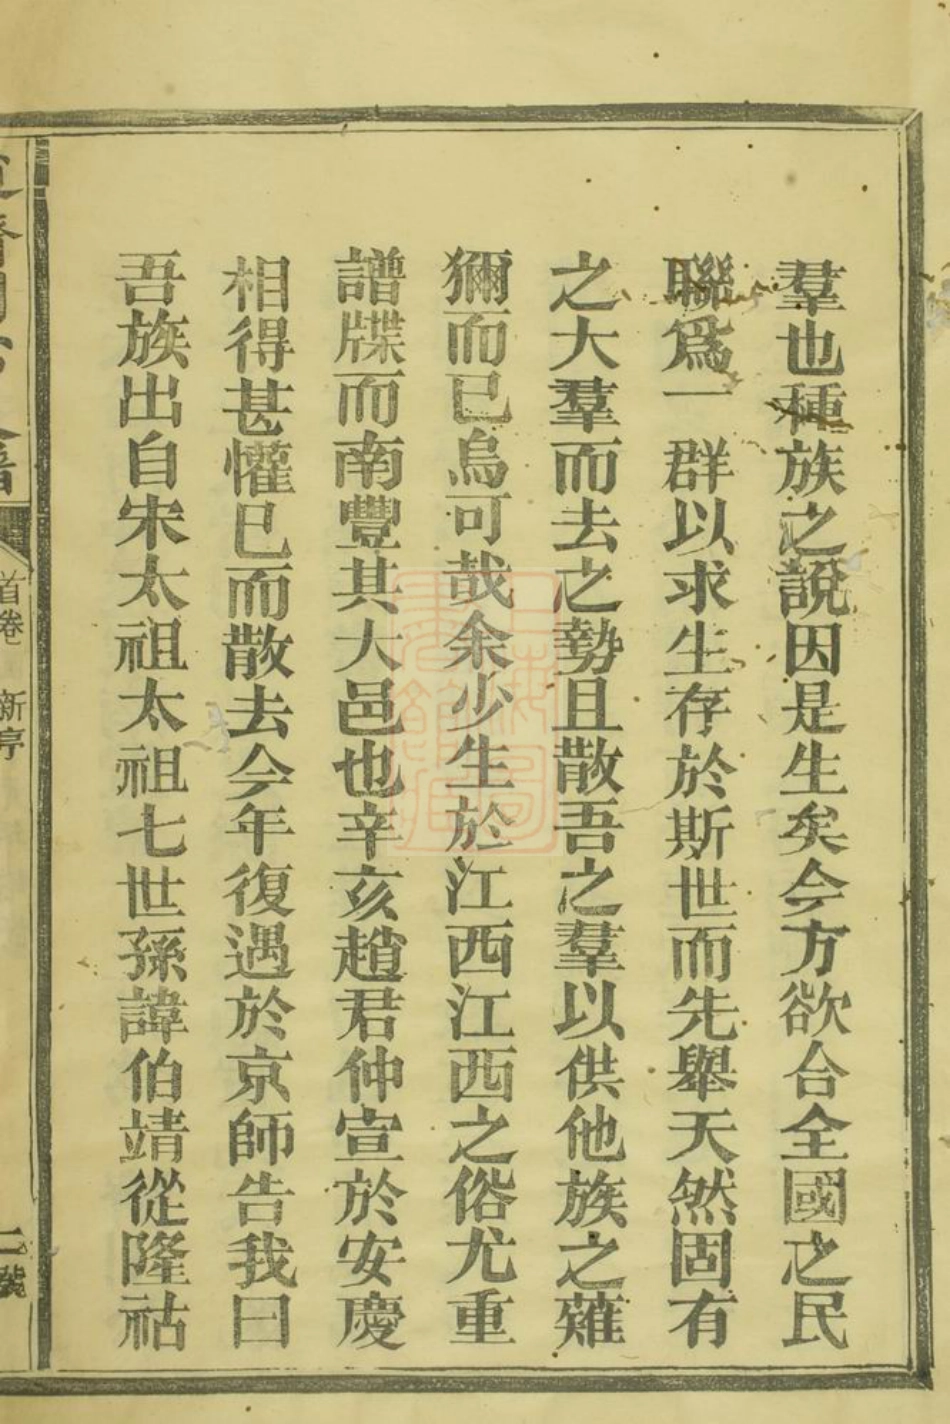 羣也種族之說因是生矣今方欲合全國之民
聯爲一群以求生存於斯世而先舉天然固有
之大羣而去之勢且散吾之羣以供他族之薙
獮而已烏可哉余少生於江西江西之俗尤重
譜牒而南豐其大邑也辛亥趙君仲宣於安慶
相得甚懽已而散去今年復遇於京師告我曰
吾族出自宋太祖太祖七世孫諱伯靖從隆祜
首卷 新序